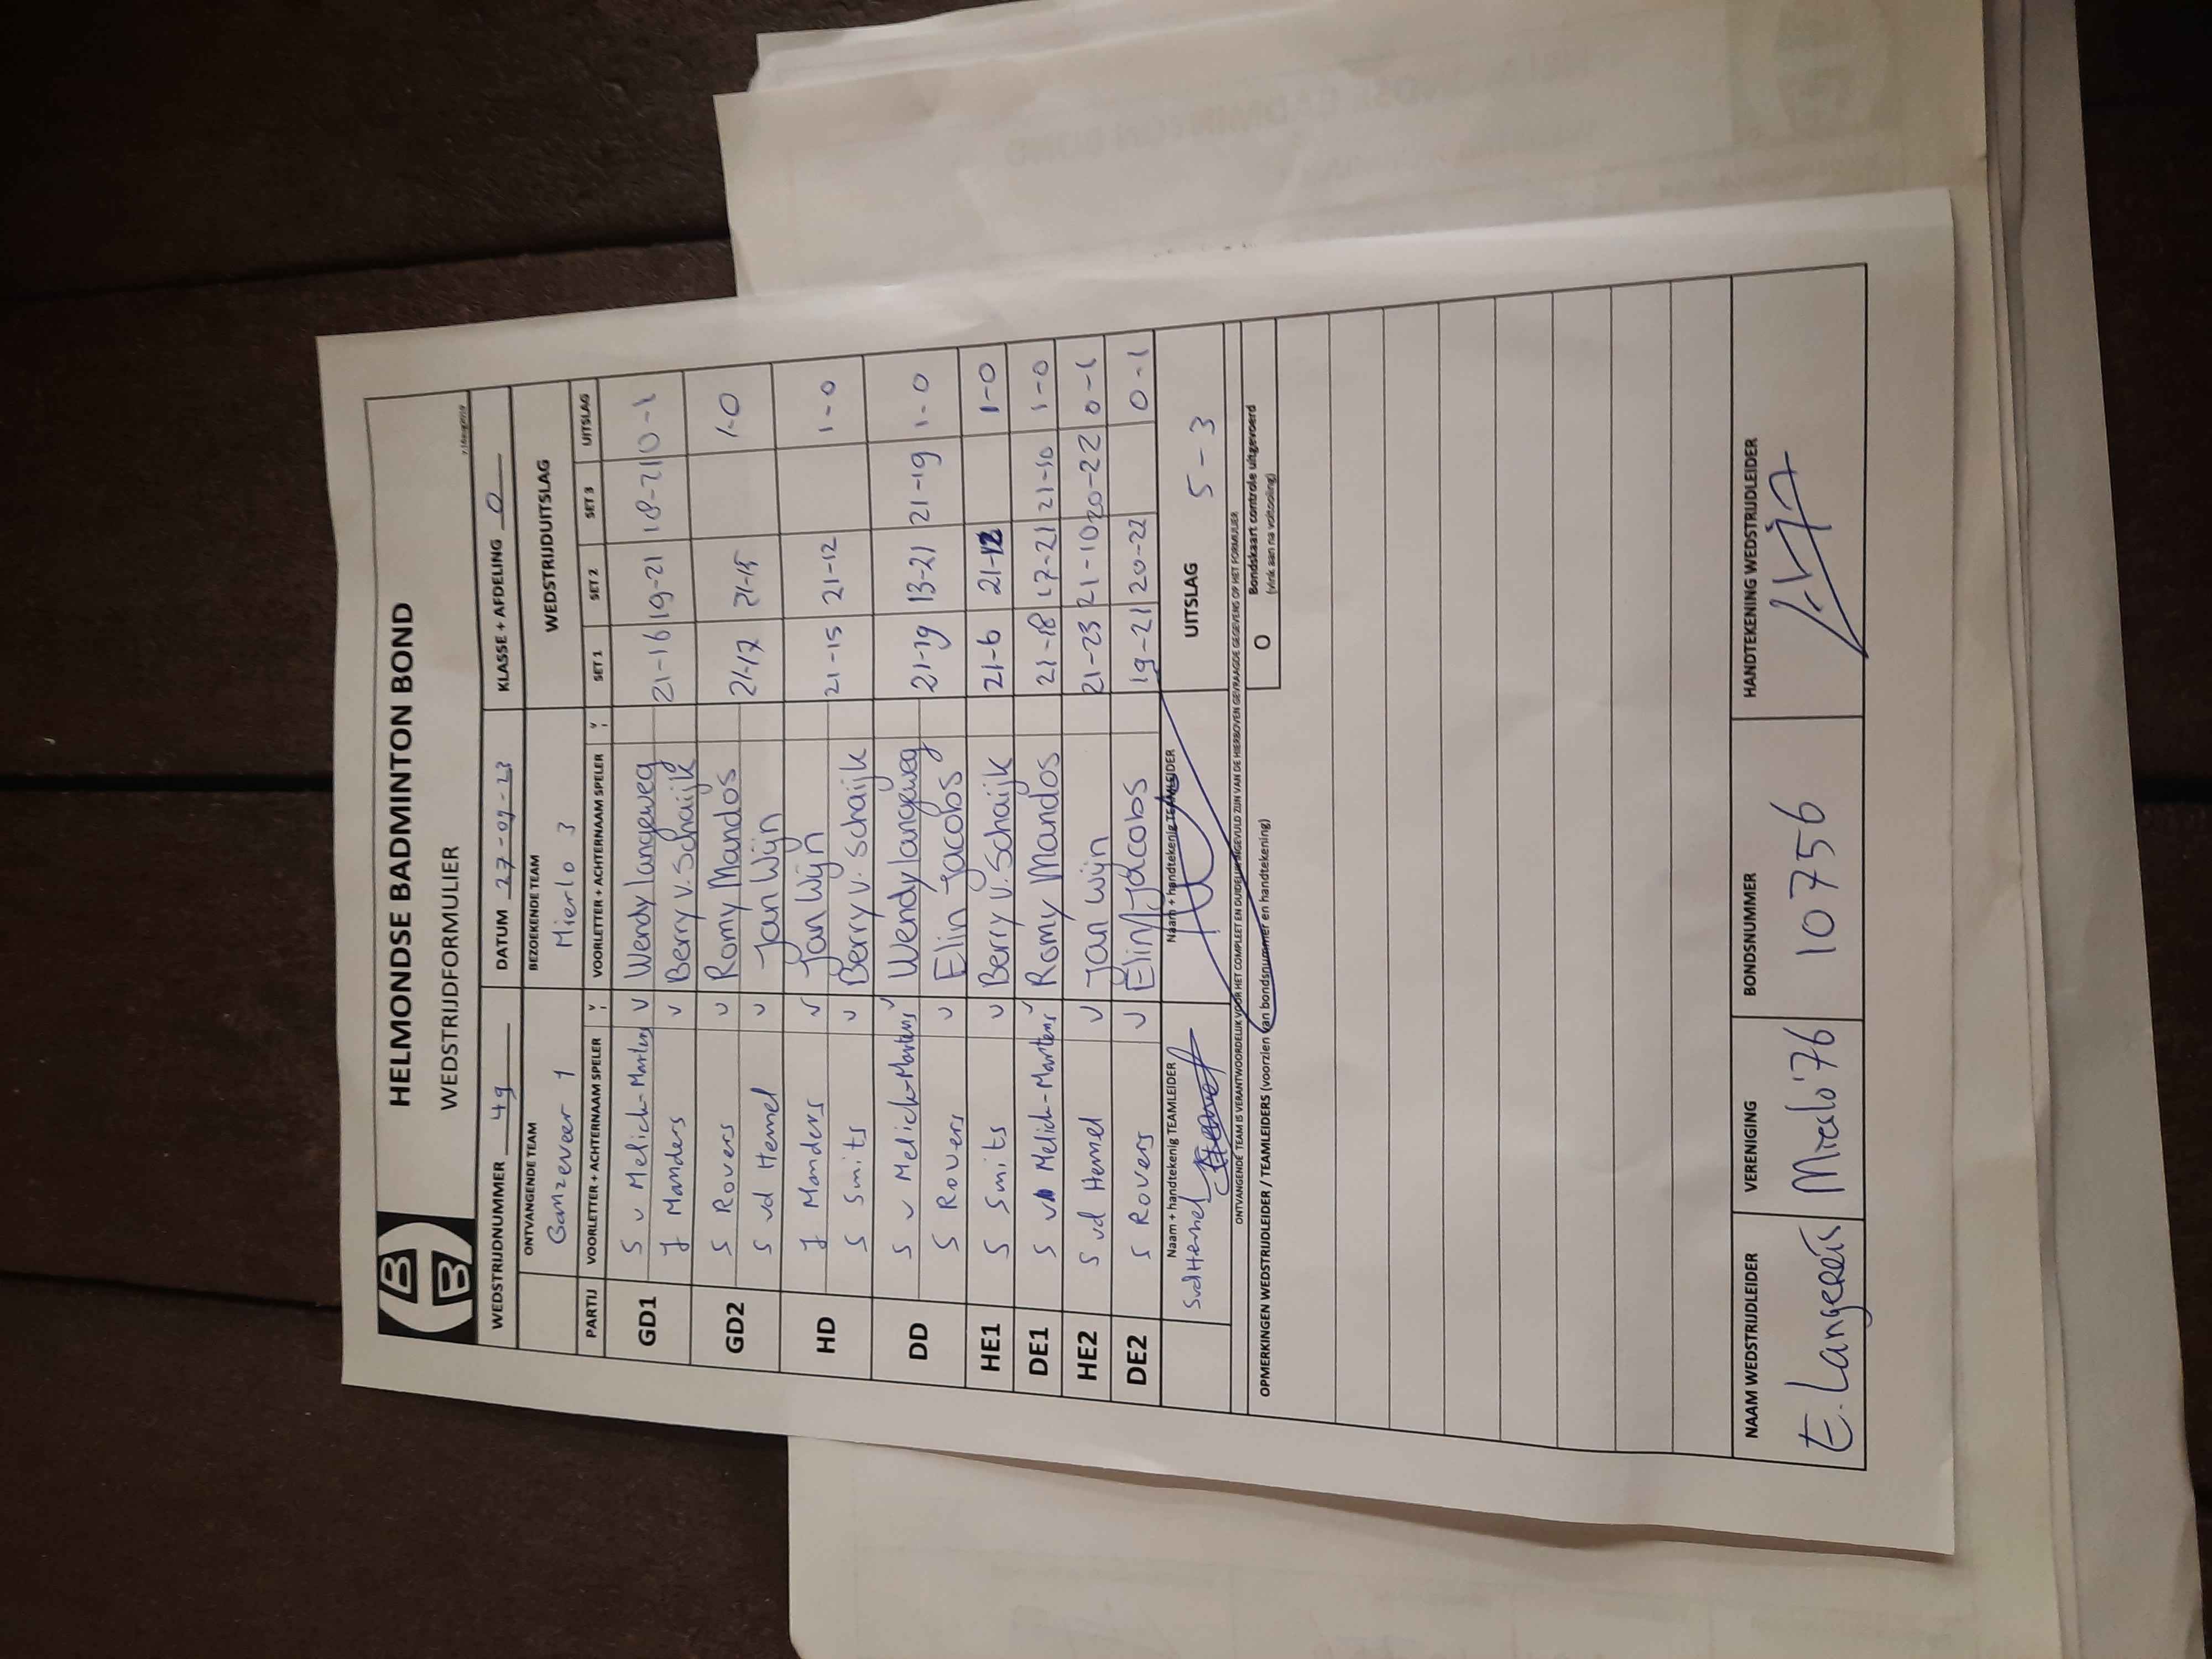 HELMONDSE BADMINTON BOND
WEDSTRIJDFORMULIER
WEDSTRIJDNUMMER 49 DATUM 27-09-23 KLASSE + AFDELING O
ONTVANGENDE TEAM BEZOEKENDE TEAM WEDSTRIJDUITSLAG
Ganzeveer 1 Mierlo 3
PARTIJ VOORLETTER + ACHTERNAAM SPELER VOORLETTER + ACHTERNAAM SPELER SET 1 SET 2 SET 3 UITSLAG
GD1 S v Melick-Martens v Wendy Langeweg 21-16 19-21 18-21 0-1
J Manders v Berry v. Schaijk
GD2 S Rovers v Romy Mandos 21-17 21-15 1-0
S vd Hemel v Jan Wijn
HD J Manders v Jan Wijn 21-15 21-12 1-0
S Smits v Berry v. Schaijk
DD S v Melick-Martens v Wendy Langeweg 21-19 13-21 21-19 1-0
S Rovers v Elin Jacobs
HE1 S Smits v Berry v. Schaijk 21-6 21-12 1-0
DE1 S v Melick-Martens v Romy Mandos 21-18 17-21 21-10 1-0
HE2 S vd Hemel v Jan Wijn 21-23 21-10 20-22 0-1
DE2 S Rovers v Elin Jacobs 19-21 20-22 0-1
Naam + handtekenig TEAMLEIDER Naam + handtekenig TEAMLEIDER UITSLAG 5-3
SvdHemel
ONTVANGENDE TEAM IS VERANTWOORDELIJK VOOR HET COMPLEET EN DUIDELIJK INGEVULD ZIJN VAN DE HIERBOVEN GEVRAAGDE GEGEVENS OP HET FORMULIER
O Bondskaart controle uitgevoerd
(vink aan na voltooiing)
OPMERKINGEN WEDSTRIJDLEIDER / TEAMLEIDERS (voorzien van bondsnummer en handtekening)
NAAM WEDSTRIJDLEIDER VERENIGING BONDSNUMMER HANDTEKENING WEDSTRIJDLEIDER
E. Langereis Mierlo'76 10756